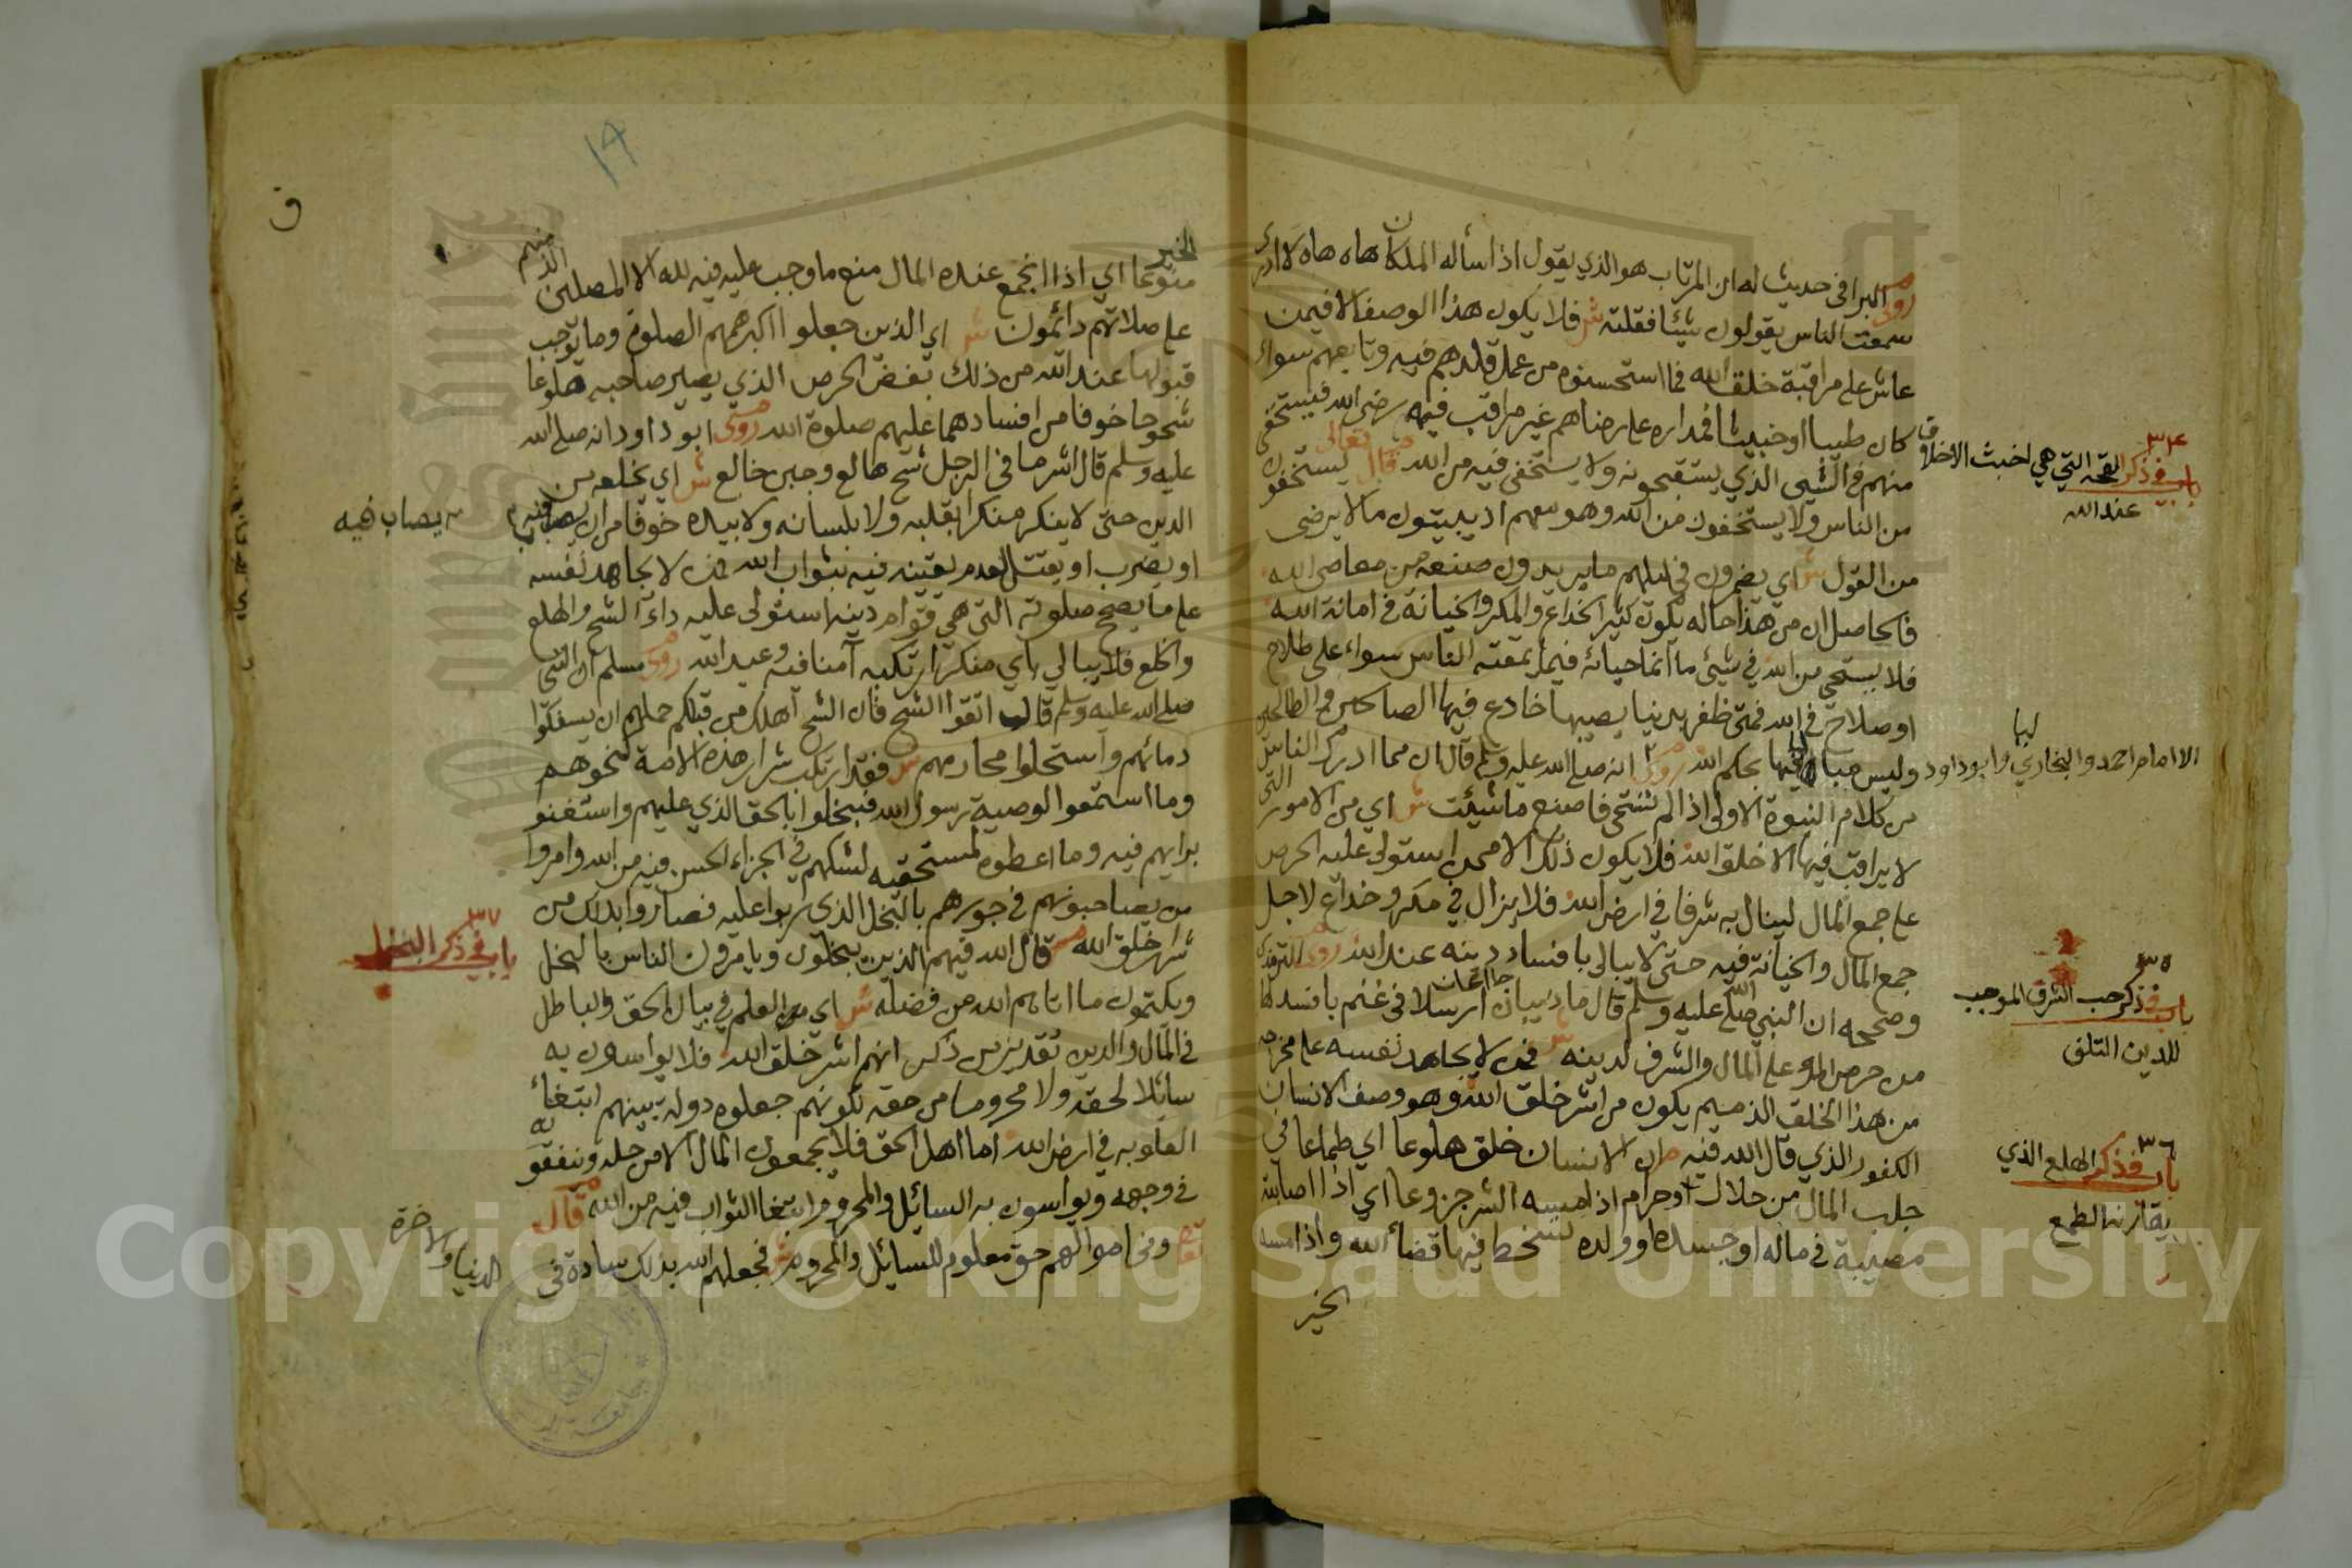 روى البرا في حديث له ان المرتاب هو الذي يقول اذا سأله الملكان هاه هاه لا ادري
سمعت الناس يقولون شيئا فقلته ش فلا يكون هذا الوصف الا فيمن
عاش على مراقبة خلق الله فما استحسنوه من عمل قلدهم فيه وتابعهم سواء
كان طيبا او خبيثا فمداره على رضاهم غير مراقب فيه رضى الله فيستخفى
منهم في الشيى الذي يستقبحونه ولا يستخفى فيه من الله قال تعالى يستخفون
من الناس ولا يستخفون من الله وهو معهم اذ يبيتون ما لا يرضى
من القول ش اي يضمرون في ليلهم ما يريدون صنعه من معاصي الله
فالحاصل ان من هذا حاله يكون كثير الخداع والمكر والخيانة في امانة الله
فلا يستحي من الله في شيئ ما انما حيائه فيما يمقته الناس سواء على طلاح
او صلاح في الله فمتى ظفر بدنيا يصيبها خادع فيها الصالحين والطالحين
وليس مباليا فيها بحكم الله روى انه صلى الله عليه وسلم قال ان مما ادرك الناس
من كلام النبوة الاولى اذا لم تستحي فاصنع ما شيئت ش اي من الامور التي
لا يراقب فيها الا خلق الله فلا يكون ذلك الا ممن استولى عليه الحرص
على جمع المال لينال به شرفا في ارض الله فلا يزال في مكر وخداع لاجل
جمع المال والخيانة فيه حتى لا يبالي بافساد دينه عند الله روى الترمذي
وصححه ان النبي صلى الله عليه وسلم قال ما ذيبان جائعان ارسلا في غنم بافسد لها
من حرص المرء على المال والشرف لدينه ش فمن لا يجاهد نفسه على مخرجه
من هذا الخلق الذميم يكون من اشر خلق الله وهو وصف الانسان
الكفور الذي قال الله فيه ان الانسان خلق هلوعا اي طماعا في
جلب المال من حلال او حرام اذا مسه الشر جزوعا اي اذا اصابته
مصيبة في ماله او جسده او ولده تسخط فيها قضاء الله واذا مسه
الخير
٣٤
باب في ذكر القحة التي هي اخبث الاخلاق
عند الله
الامام احمد والبخاري وابو داود
٣٥
باب في ذكر حب الشرف الموجب
للدين التلف
٣٦
باب في ذكر الهلع الذي
يقارنه الطمع
١٩
الخير
منوعا اي اذا انجمع عنده المال منع ما وجب عليه فيه لله الا المصلين الذينهم
على صلاتهم دائمون ش اي الذين جعلوا اكبر همهم الصلوة وما يوجب
قبولها عند الله من ذلك بغض الحرص الذي يصير صاحبه هلوعا
شحوحا خوفا من افسادهما عليهم صلوة الله روى ابو داود انه صلى الله
عليه وسلم قال اشر ما في الرجل شح هالع وجبن خالع ش اي يخلعه من
الدين حتى لا ينكر منكرا بقلبه ولا بلسانه ولا بيده خوفا من ان
او يضرب او يقتل لعدم يقينه فيه بثواب الله فمن لا يجاهد نفسه
على ما يصح صلوته التي هي قوام دينه استولى عليه داء الشح والهلع
والخلع فلا يبالي باي منكر ارتكبه آمنا فيه وعيد الله روى مسلم ان النبي
صلى الله عليه وسلم قال اتقوا الشح فان الشح اهلك من قبلكم حملهم ان يسفكوا
دمائهم واستحلوا محارمهم ش فقد ارتكب شرار هذه الامة نحوهم
وما استمعوا لوصية رسول الله فيبخلوا بالحق الذي عليهم واستغنو
برايهم فيه وما اعطوه لمستحقيه لشكهم في الجزاء الحسن فيه من الله وامروا
من يصاحبونهم في جورهم بالبخل الذي ربوا عليه فصاروا بذلك من
شر خلق الله قال الله فيهم الذين يبخلون ويامرون الناس بالبخل
ويكتمون ما اتاهم الله من فضله ش اي من العلم في بيان الحق والباطل
في المال والدين تقدير من ذكر انهم اشر خلق الله فلا يواسون به
سائلا لحقه ولا محروما من حقه لكونهم جعلوه دولة بينهم ابتغاء
العلو به في ارض الله اما اهل الحق فلا يجمعون المال الا من حله وينفقونه
في وجهه ويواسون به السائل والمحروم ابتغاء الثواب فيه من الله قال
وفي اموالهم حق معلوم للسائل والمحروم ش فجعلهم الله بذلك سادة في
الدنيا والاخرة
يصاب فيه
٣٧
باب في ذكر البخل
Copyright © King Saud University